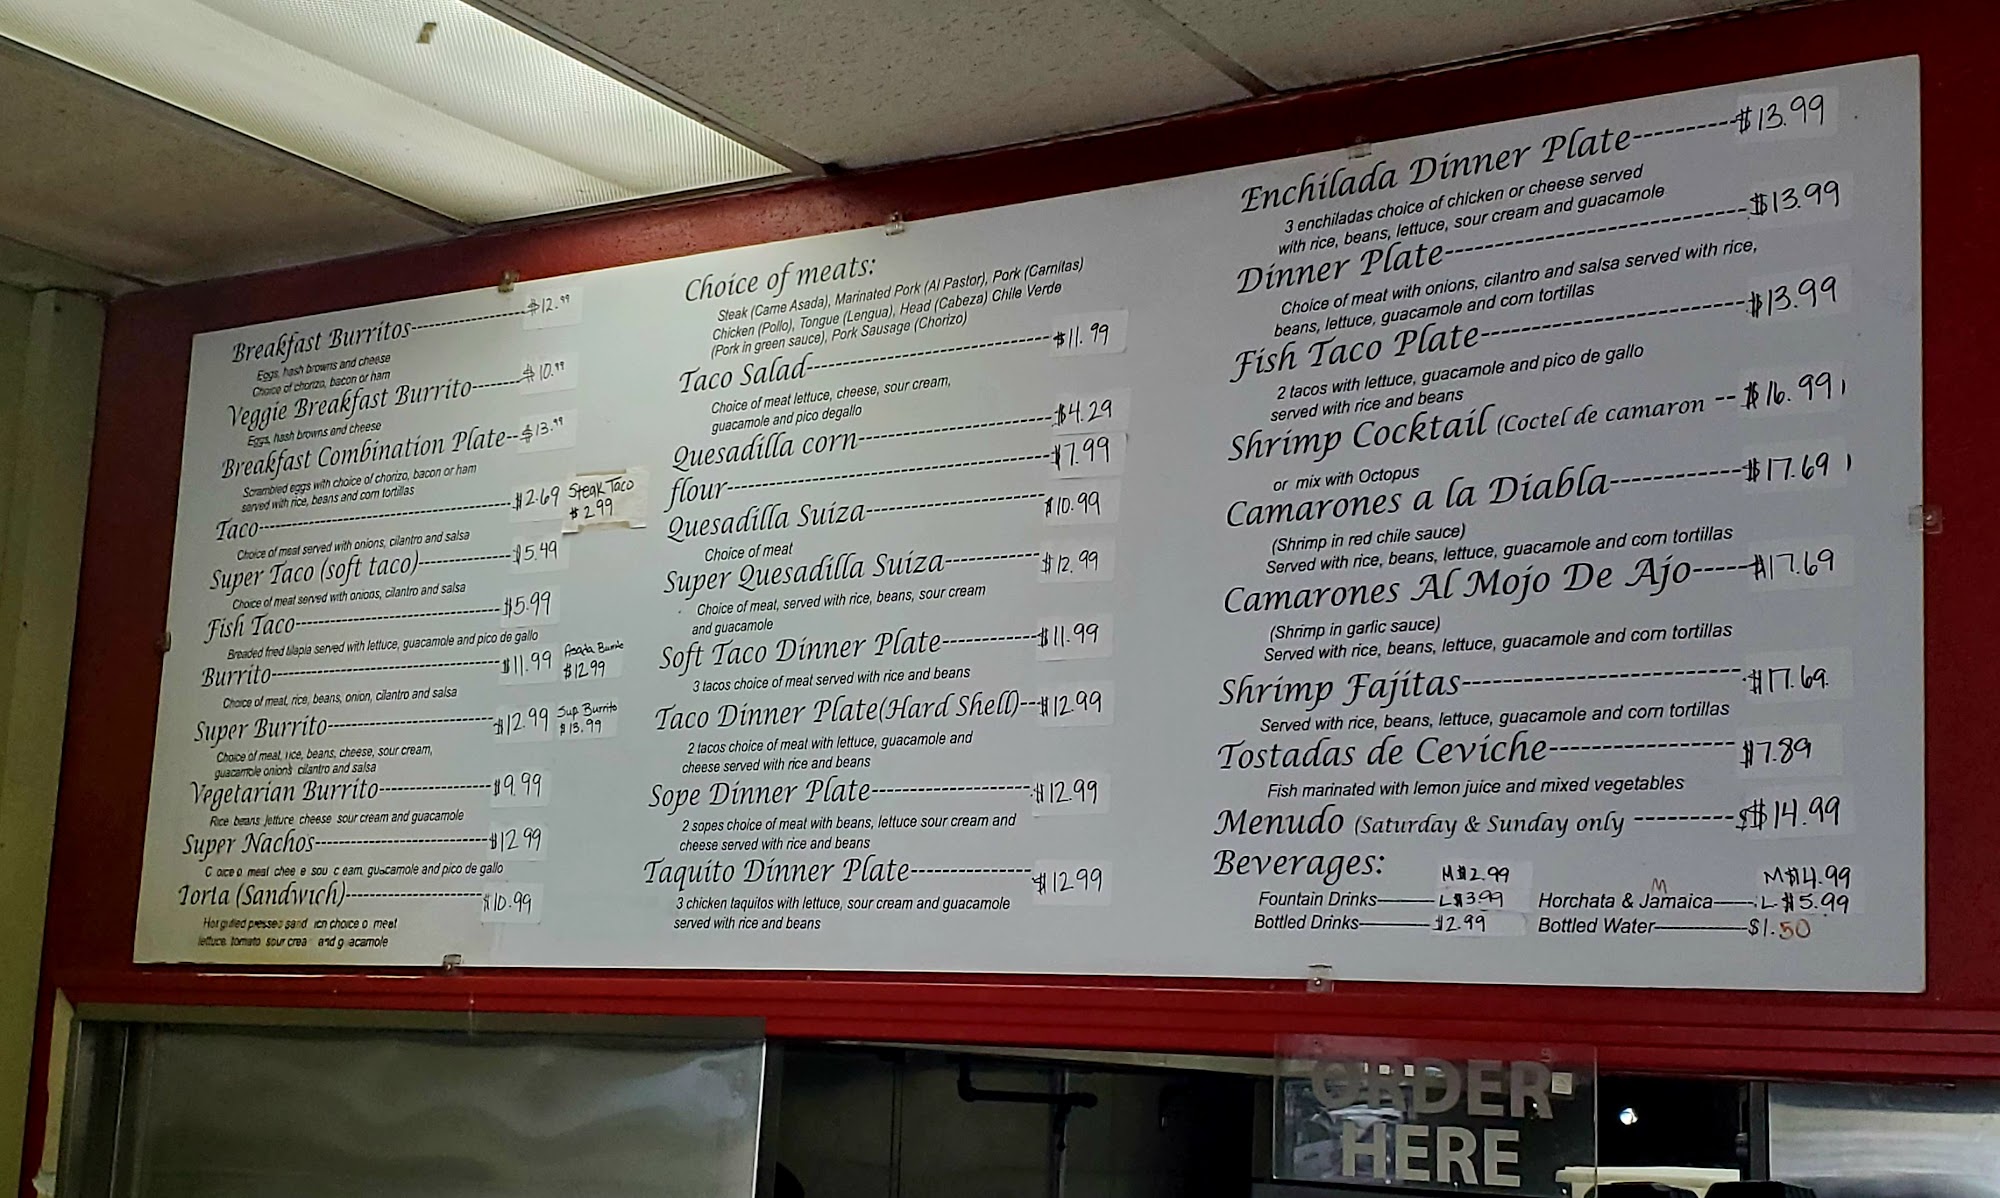 Breakfast Burritos $12.99
Eggs, hash browns and cheese
Choice of chorizo, bacon or ham
Veggie Breakfast Burrito $10.99
Eggs, hash browns and cheese
Breakfast Combination Plate $13.99
Scrambled eggs with choice of chorizo, bacon or ham
served with rice, beans and corn tortillas
Taco $2.69 Steak Taco $2.99
Choice of meat served with onions, cilantro and salsa
Super Taco (soft taco) $5.49
Choice of meat served with onions, cilantro and salsa
Fish Taco $5.99
Breaded fried tilapia served with lettuce, guacamole and pico de gallo
Burrito $11.99 Asada Burrito $12.99
Choice of meat, rice, beans, onion, cilantro and salsa
Super Burrito $12.99 Sup. Burrito $13.99
Choice of meat, rice, beans, cheese, sour cream,
guacamole onions cilantro and salsa
Vegetarian Burrito $9.99
Rice beans lettuce cheese sour cream and guacamole
Super Nachos $12.99
C oice o meat chee e sou c eam, guacamole and pico de gallo
Torta (Sandwich) $10.99
Hot grilled pressed sand ich choice o meet
lettuce, tomato sour crea and g acamole
Choice of meats:
Steak (Carne Asada), Marinated Pork (Al Pastor), Pork (Carnitas)
Chicken (Pollo), Tongue (Lengua), Head (Cabeza) Chile Verde
(Pork in green sauce), Pork Sausage (Chorizo)
Taco Salad $11.99
Choice of meat lettuce, cheese, sour cream,
guacamole and pico degallo
Quesadilla corn $4.29
flour $7.99
Quesadilla Suiza $10.99
Choice of meat
Super Quesadilla Suiza $12.99
Choice of meat, served with rice, beans, sour cream
and guacamole
Soft Taco Dinner Plate $11.99
3 tacos choice of meat served with rice and beans
Taco Dinner Plate(Hard Shell) $12.99
2 tacos choice of meat with lettuce, guacamole and
cheese served with rice and beans
Sope Dinner Plate $12.99
2 sopes choice of meat with beans, lettuce sour cream and
cheese served with rice and beans
Taquito Dinner Plate $12.99
3 chicken taquitos with lettuce, sour cream and guacamole
served with rice and beans
Enchilada Dinner Plate $13.99
3 enchiladas choice of chicken or cheese served
with rice, beans, lettuce, sour cream and guacamole
Dinner Plate $13.99
Choice of meat with onions, cilantro and salsa served with rice,
beans, lettuce, guacamole and corn tortillas
Fish Taco Plate $13.99
2 tacos with lettuce, guacamole and pico de gallo
served with rice and beans
Shrimp Cocktail (Coctel de camaron -- $16.99
or mix with Octopus
Camarones a la Diabla $17.69
(Shrimp in red chile sauce)
Served with rice, beans, lettuce, guacamole and corn tortillas
Camarones Al Mojo De Ajo $17.69
(Shrimp in garlic sauce)
Served with rice, beans, lettuce, guacamole and corn tortillas
Shrimp Fajitas $17.69
Served with rice, beans, lettuce, guacamole and corn tortillas
Tostadas de Ceviche $7.89
Fish marinated with lemon juice and mixed vegetables
Menudo (Saturday & Sunday only $$14.99
Beverages:
M $2.99
Fountain Drinks L $3.99
Bottled Drinks $2.99
M $4.99
M
Horchata & Jamaica L $5.99
Bottled Water $1.50
ORDER
HERE